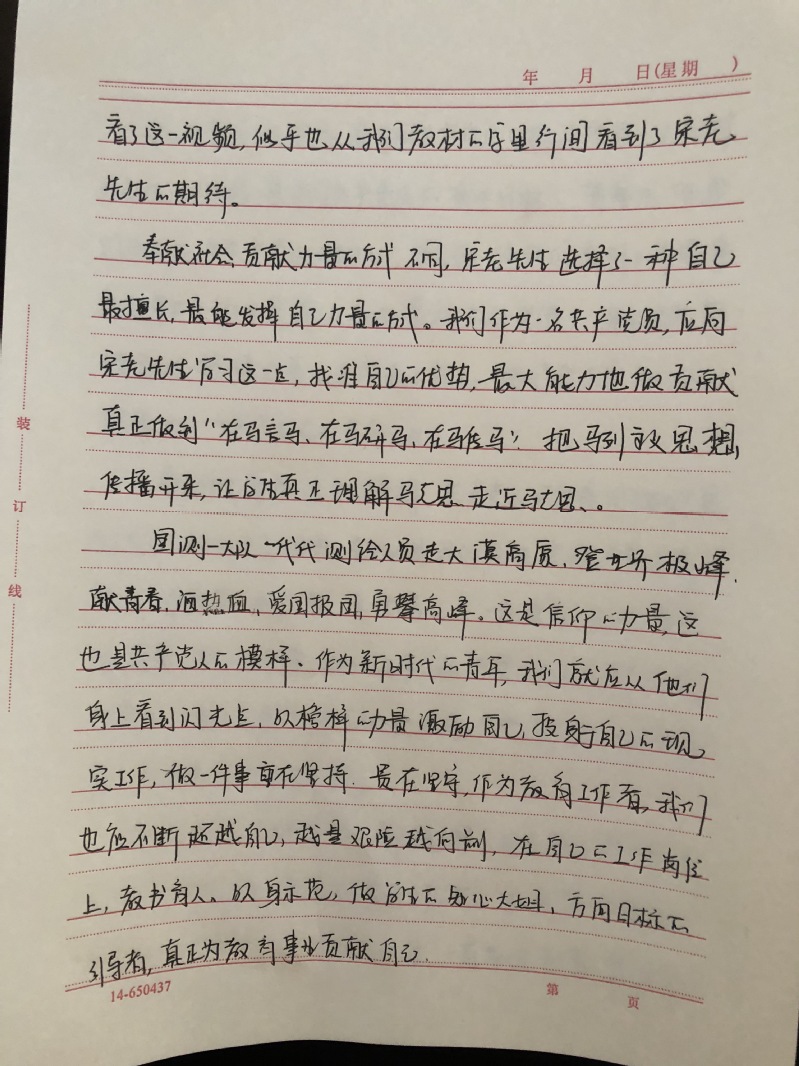 年 月 日(星期 )
看了这一视频,似乎也从我们教材的字里行间看到了宋老
先生的期待。
奉献社会,贡献力量的方式不同,宋老先生选择了一种自己
最擅长,最能发挥自己力量的方式。我们作为一名共产党员,应向
宋老先生学习这一点,找准自己的优势,最大能力地做贡献
真正做到“在马言马、在马研马、在马传马”把马列主义思想,
传播开来,让学生真正理解马克思、走近马克思、。
国测一大队一代代测绘人员走大漠高原,登世界极峰,
献青春,洒热血,爱国报国,勇攀高峰。这是信仰的力量,这
也是共产党人的模样。作为新时代的青年,我们就应从他们
身上看到闪光点,以榜样的力量激励自己,投身于自己的现
实工作,做一件事重在坚持.贵在坚守,作为教育工作者,我们
也应不断超越自己,越是艰险越向前,在自己的工作岗位
上,教书育人。以身示范,做学生的知心大姐,方向目标的
引导者,真正为教育事业贡献自己.
装
订
线
14-650437
第 页